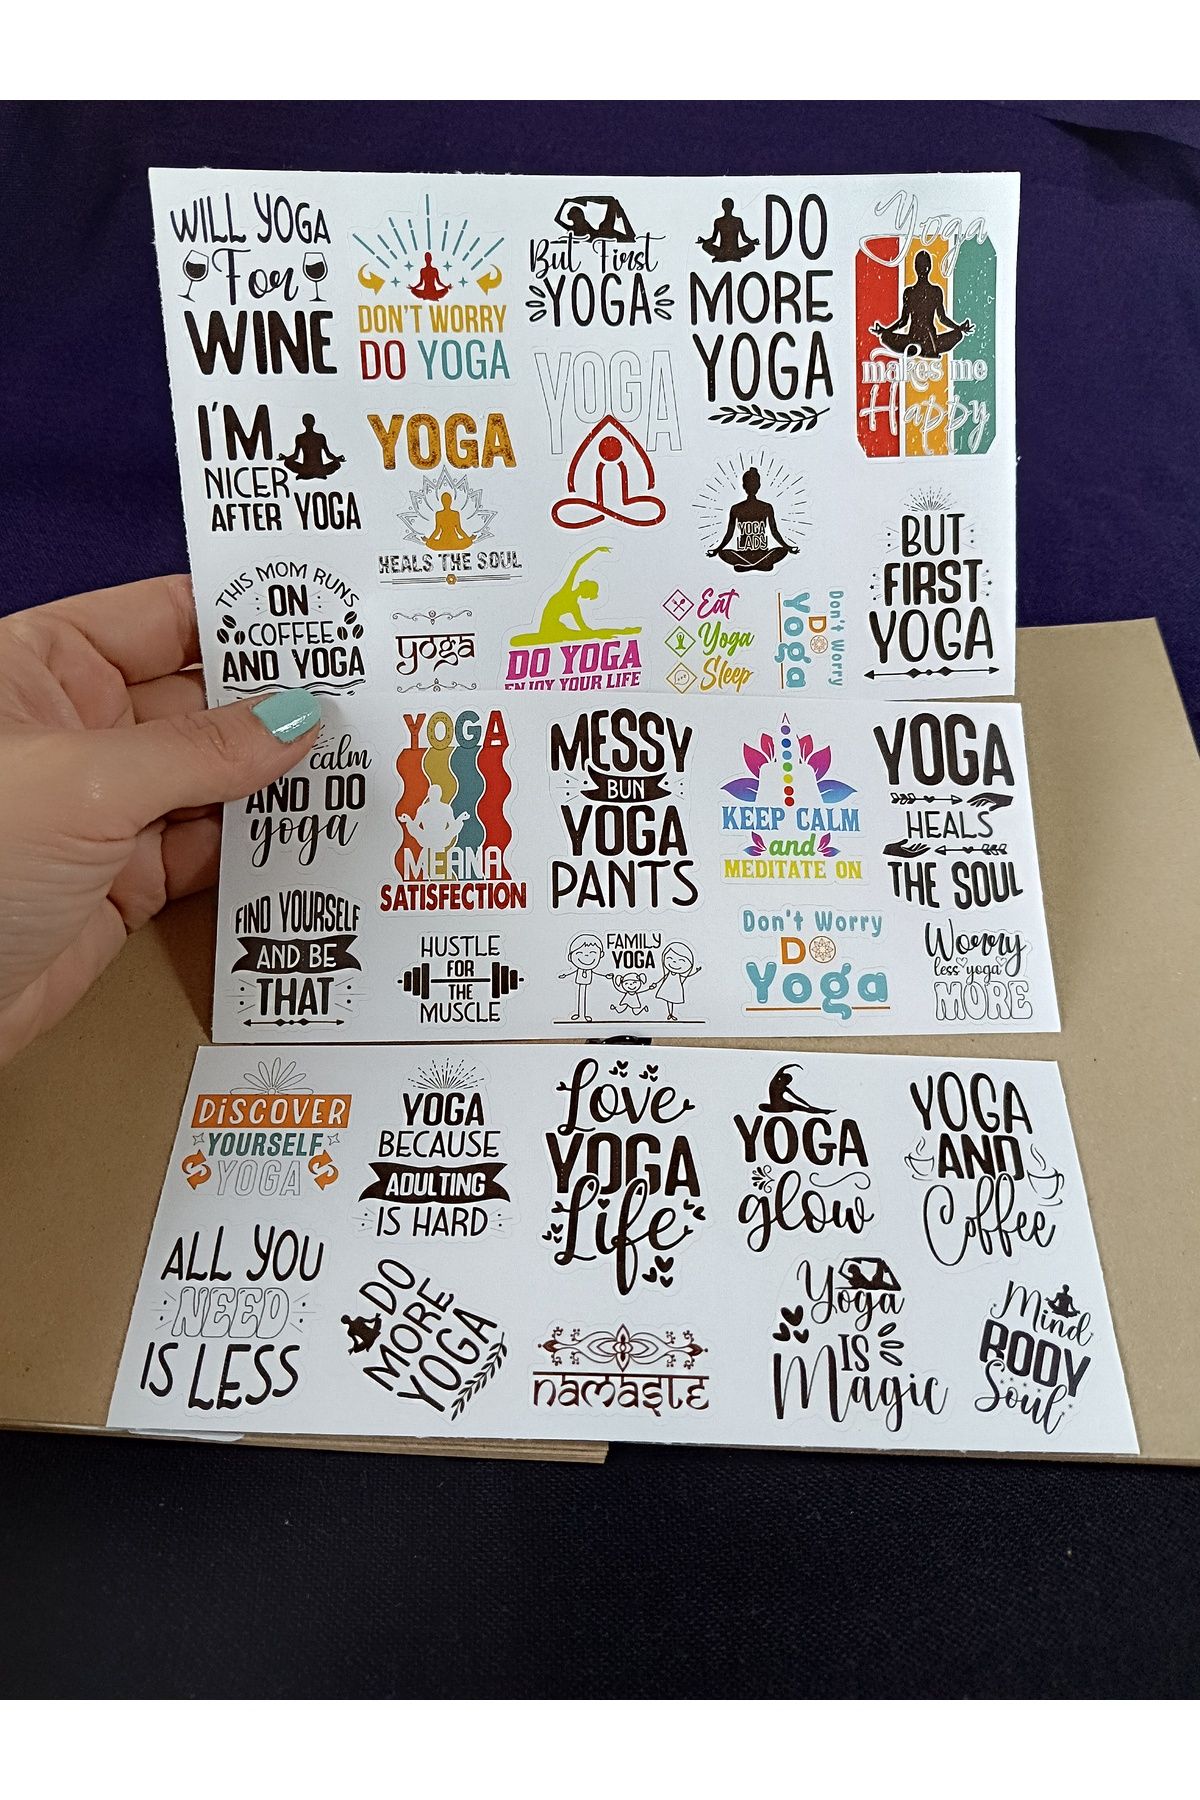 WILL YOGA
For
WINE
DON'T WORRY
DO YOGA
But First
YOGA
DO
MORE
YOGA
Yoga
makes me
Happy
I'M
NICER
AFTER YOGA
YOGA
HEALS THE SOUL
YOGA
YOGA
LADY
BUT
FIRST
YOGA
THIS MOM RUNS
ON
COFFEE
AND YOGA
yoga
DO YOGA
ENJOY YOUR LIFE
Eat
Yoga
Sleep
Don't Worry
DO
Yoga
calm
AND DO
yoga
YOGA
MEANA
SATISFECTION
MESSY
BUN
YOGA
PANTS
KEEP CALM
and
MEDITATE ON
YOGA
HEALS
THE SOUL
FIND YOURSELF
AND BE
THAT
HUSTLE
FOR
THE
MUSCLE
FAMILY
YOGA
Don't Worry
DO
Yoga
Worry
less yoga
MORE
DiSCOVER
YOURSELF
YOGA
YOGA
BECAUSE
ADULTING
IS HARD
Love
YOGA
Life
YOGA
glow
YOGA
AND
Coffee
ALL YOU
NEED
IS LESS
DO
MORE
YOGA
namaste
Yoga
IS
Magic
Mind
BODY
Soul